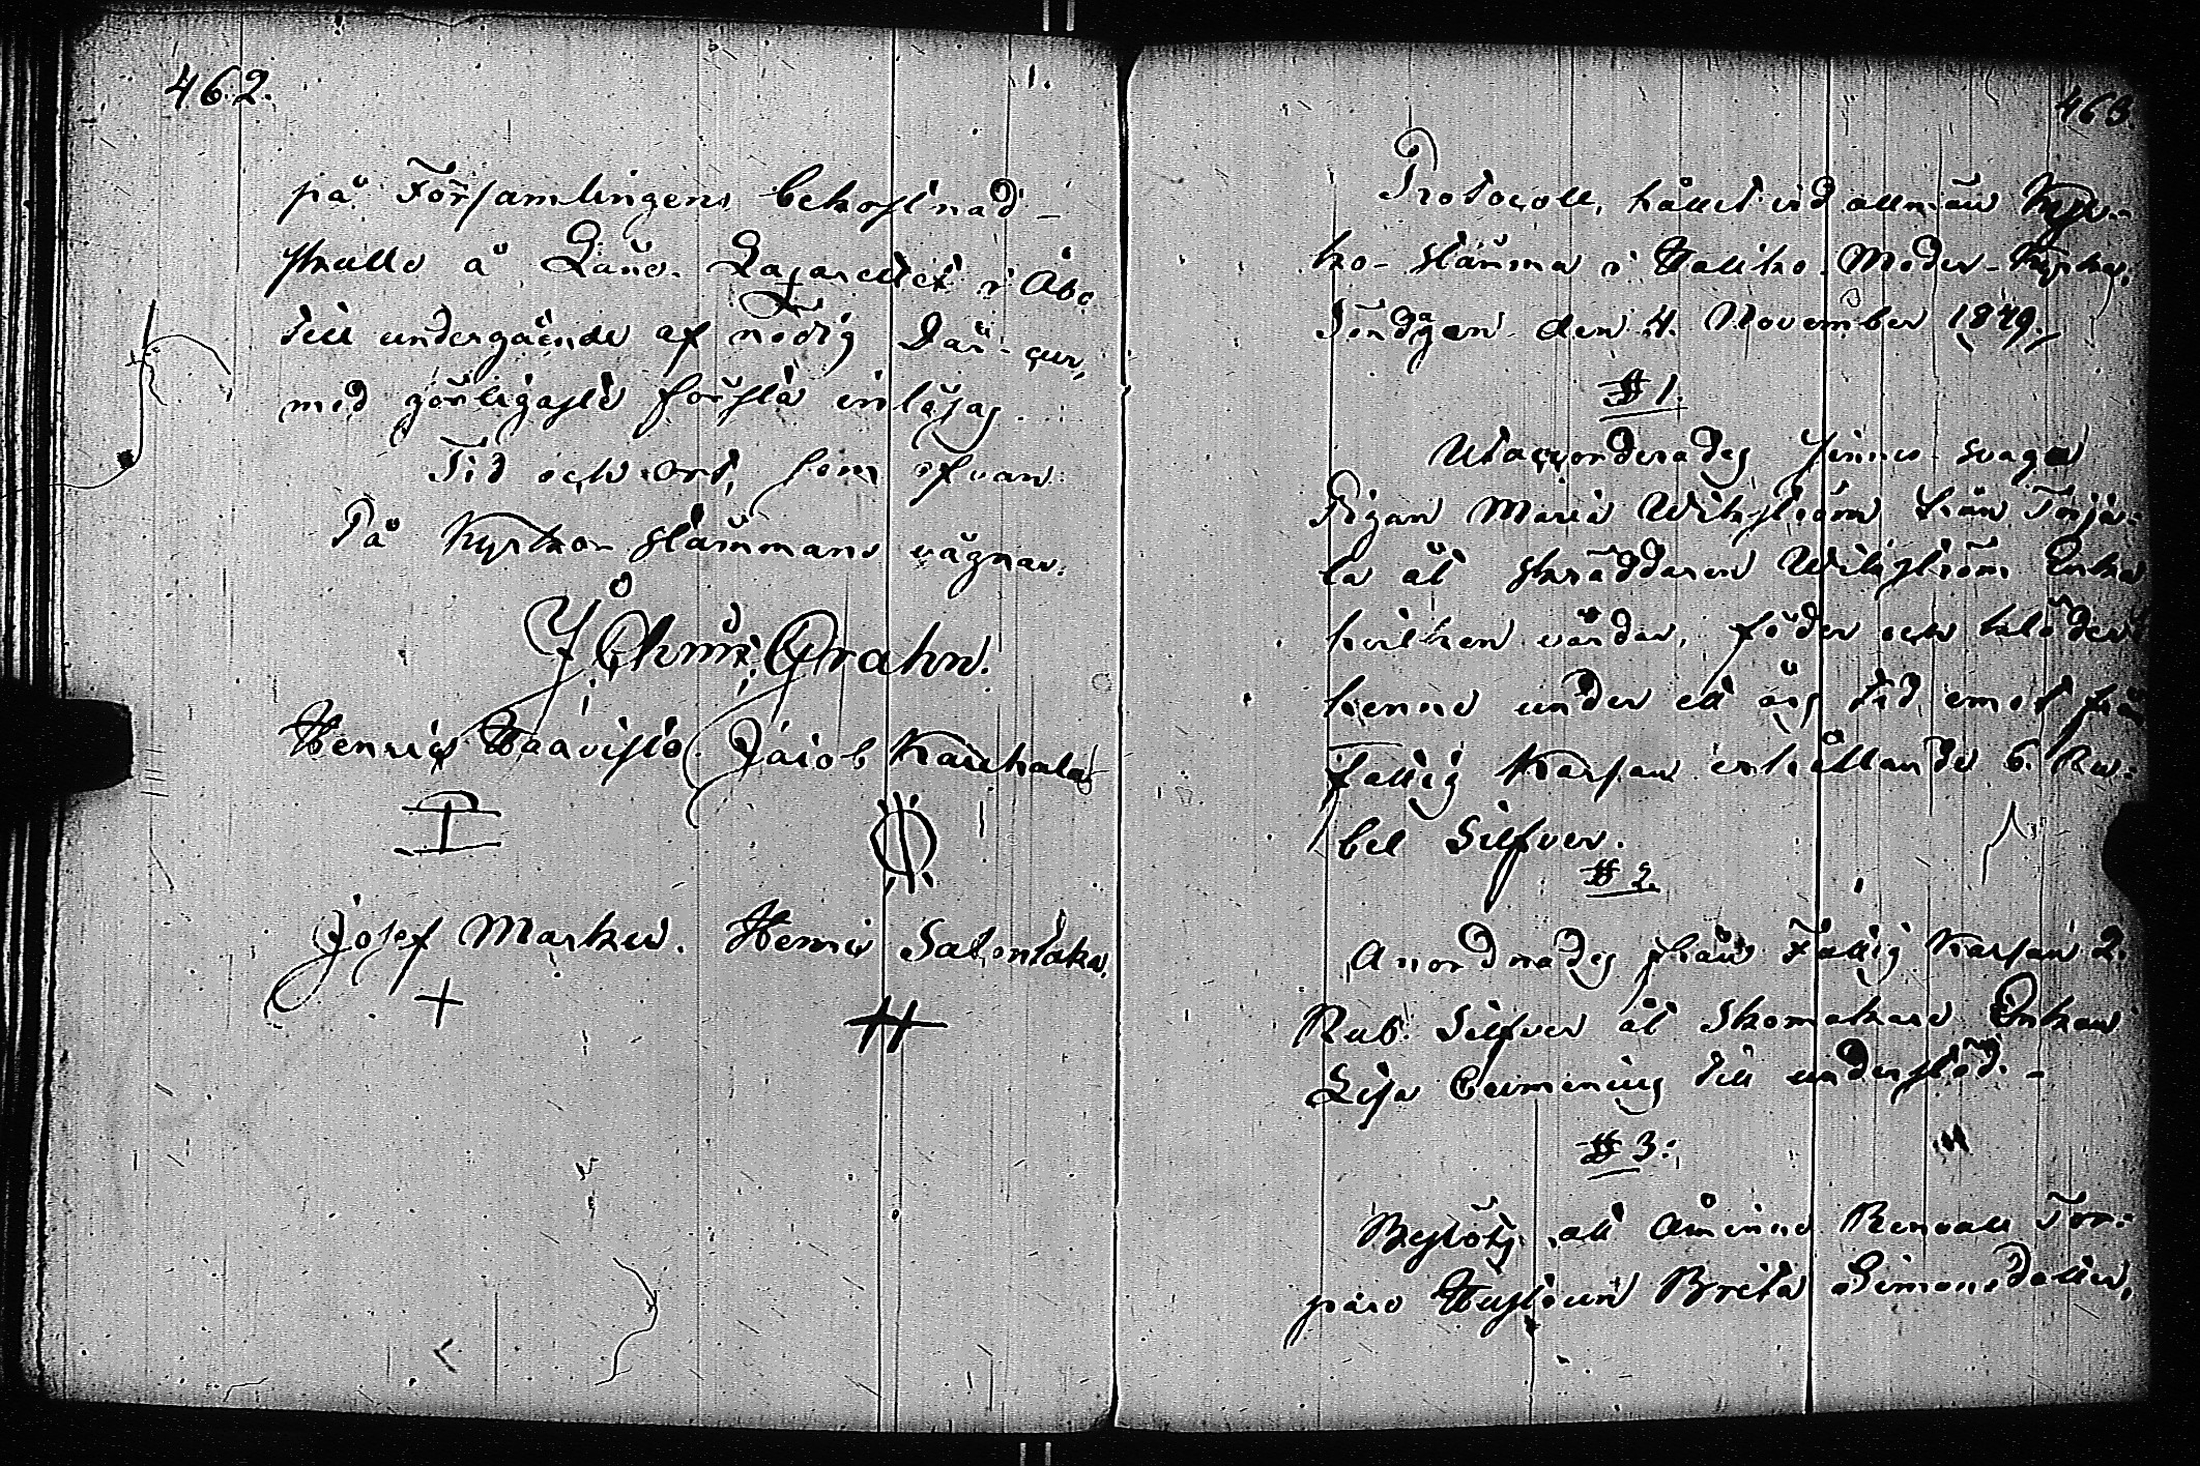 462.
på Församlingens bekostnad
skulle å Läns-Lazarettet i Åbo
till undergående af nödig Där-cur,
med görligaste första inläsas.
Tid och ort, som ofvan.
På Kyrko-stämmans vägnar:
Grahn.
Henric Haavisto. Jacob Kaukala
Josef Markus. Henric Salontaka.
463.
Protocoll, hållet vid allmän Kyr-
ko-stämma i Haliko Moder-Kyrka,
Söndagen den 4. November 1849.
§ 1.
Utaccorderades sinnes-svaga
Pigan Maria Wikström från Torja-
la åt skräddaren Wikström Enka
hvilken vårdar, föder och kläder
henne under ett års tid emot från
Fattig Kassan erhållande 6. Ru-
bel Silfver.
§ 2.
Anordnades från Fattig Kassan 2.
Rub. Silfver åt Skomakare Enkan
Lisa till understöd.
§ 3.
Beslöts, att Åminne Torp-
pars Hustrun Brita Simonsdotter,